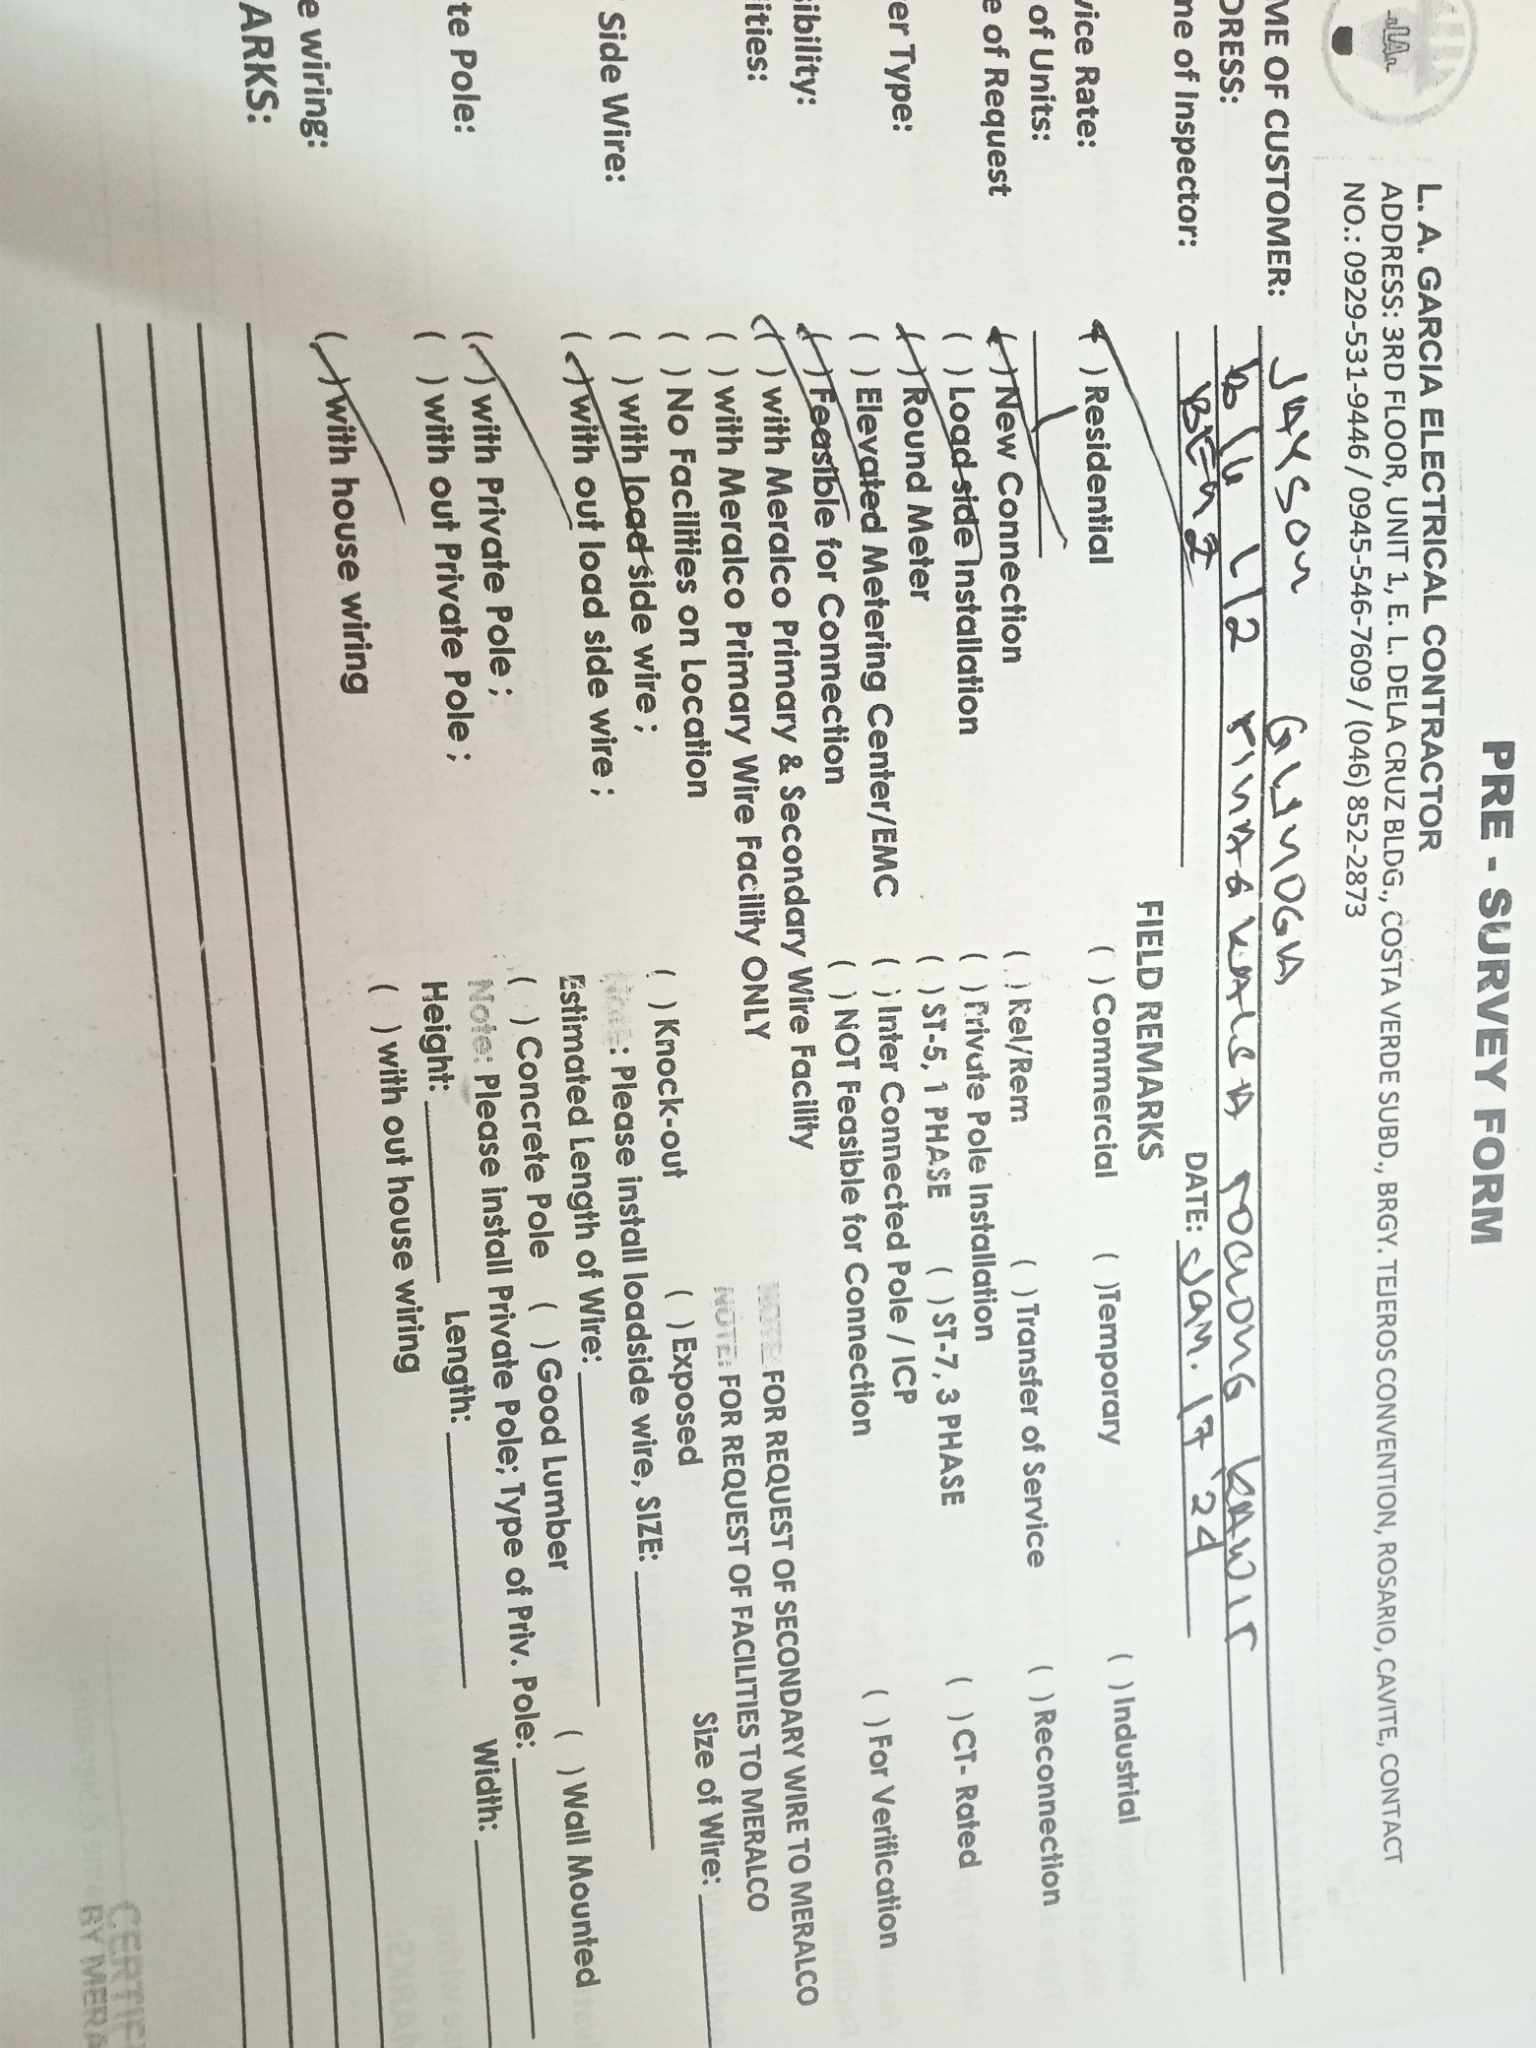 PRE - SURVEY FORM
L. A. GARCIA ELECTRICAL CONTRACTOR
ADDRESS: 3RD FLOOR, UNIT 1, E. L. DELA CRUZ BLDG., COSTA VERDE SUBD., BRGY. TEJEROS CONVENTION, ROSARIO, CAVITE, CONTACT
NO.: 0929-531-9446 / 0945-546-7609 / (046) 852-2873
ME OF CUSTOMER: JAYSON
DRESS: L12 KAWIT
me of Inspector: DATE: Jan. 17 '24
FIELD REMARKS
vice Rate: ( ) Residential ( ) Commercial ( )Temporary ( ) Industrial
of Units: 1
e of Request ( ) New Connection ( ) Rel/Rem ( ) Transfer of Service ( ) Reconnection
( ) Load side Installation ( ) Private Pole Installation
er Type: ( ) Round Meter ( ) ST-5, 1 PHASE ( ) ST-7, 3 PHASE ( ) CT- Rated
( ) Elevated Metering Center/EMC ( ) Inter Connected Pole / ICP
ibility: ( ) Feasible for Connection ( ) NOT Feasible for Connection ( ) For Verification
ities: ( ) with Meralco Primary & Secondary Wire Facility NOTE: FOR REQUEST OF SECONDARY WIRE TO MERALCO
( ) with Meralco Primary Wire Facility ONLY NOTE: FOR REQUEST OF FACILITIES TO MERALCO
( ) No Facilities on Location
Side Wire: ( ) with load side wire ; ( ) Knock-out ( ) Exposed Size of Wire:
( ) with out load side wire ; Note: Please install loadside wire, SIZE:
Estimated Length of Wire:
te Pole: ( ) with Private Pole ; ( ) Concrete Pole ( ) Good Lumber ( ) Wall Mounted
( ) with out Private Pole ; Note: Please install Private Pole; Type of Priv. Pole:
Height: Length: Width:
e wiring: ( ) with house wiring ( ) with out house wiring
ARKS:
CERTIF
BY MERA